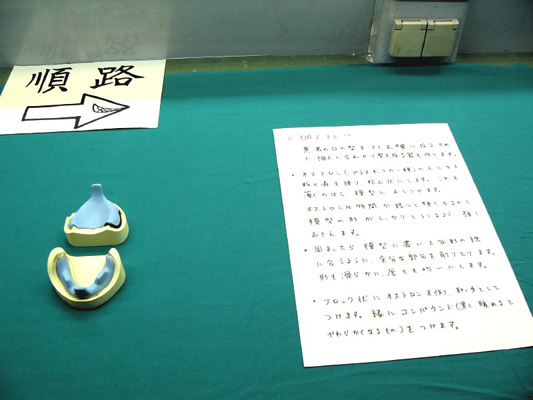 順路
個人トレー
患者の口の型をより正確に採るため
に 個人に合わせて型を採る器を作ります。
• オストロン(プラスチックの一種)の
粉と液を練り、粘土状にします。これを
薄くのばし 模型に おしつけます。
オストロンは時間が経つと硬くなるので、
模型の形がしっかりとうつるよう 強く
おさえます。
• 固まったら 模型に書いた外形の線
に合うように、余分な部分を削りとります。
形も滑らかに、厚さも均一にします。
• ブロック状にオストロンを作り、取っ手として
つけます。縁にコンパウンド(黒く 暖めると
やわらかくなるもの)をつけます。